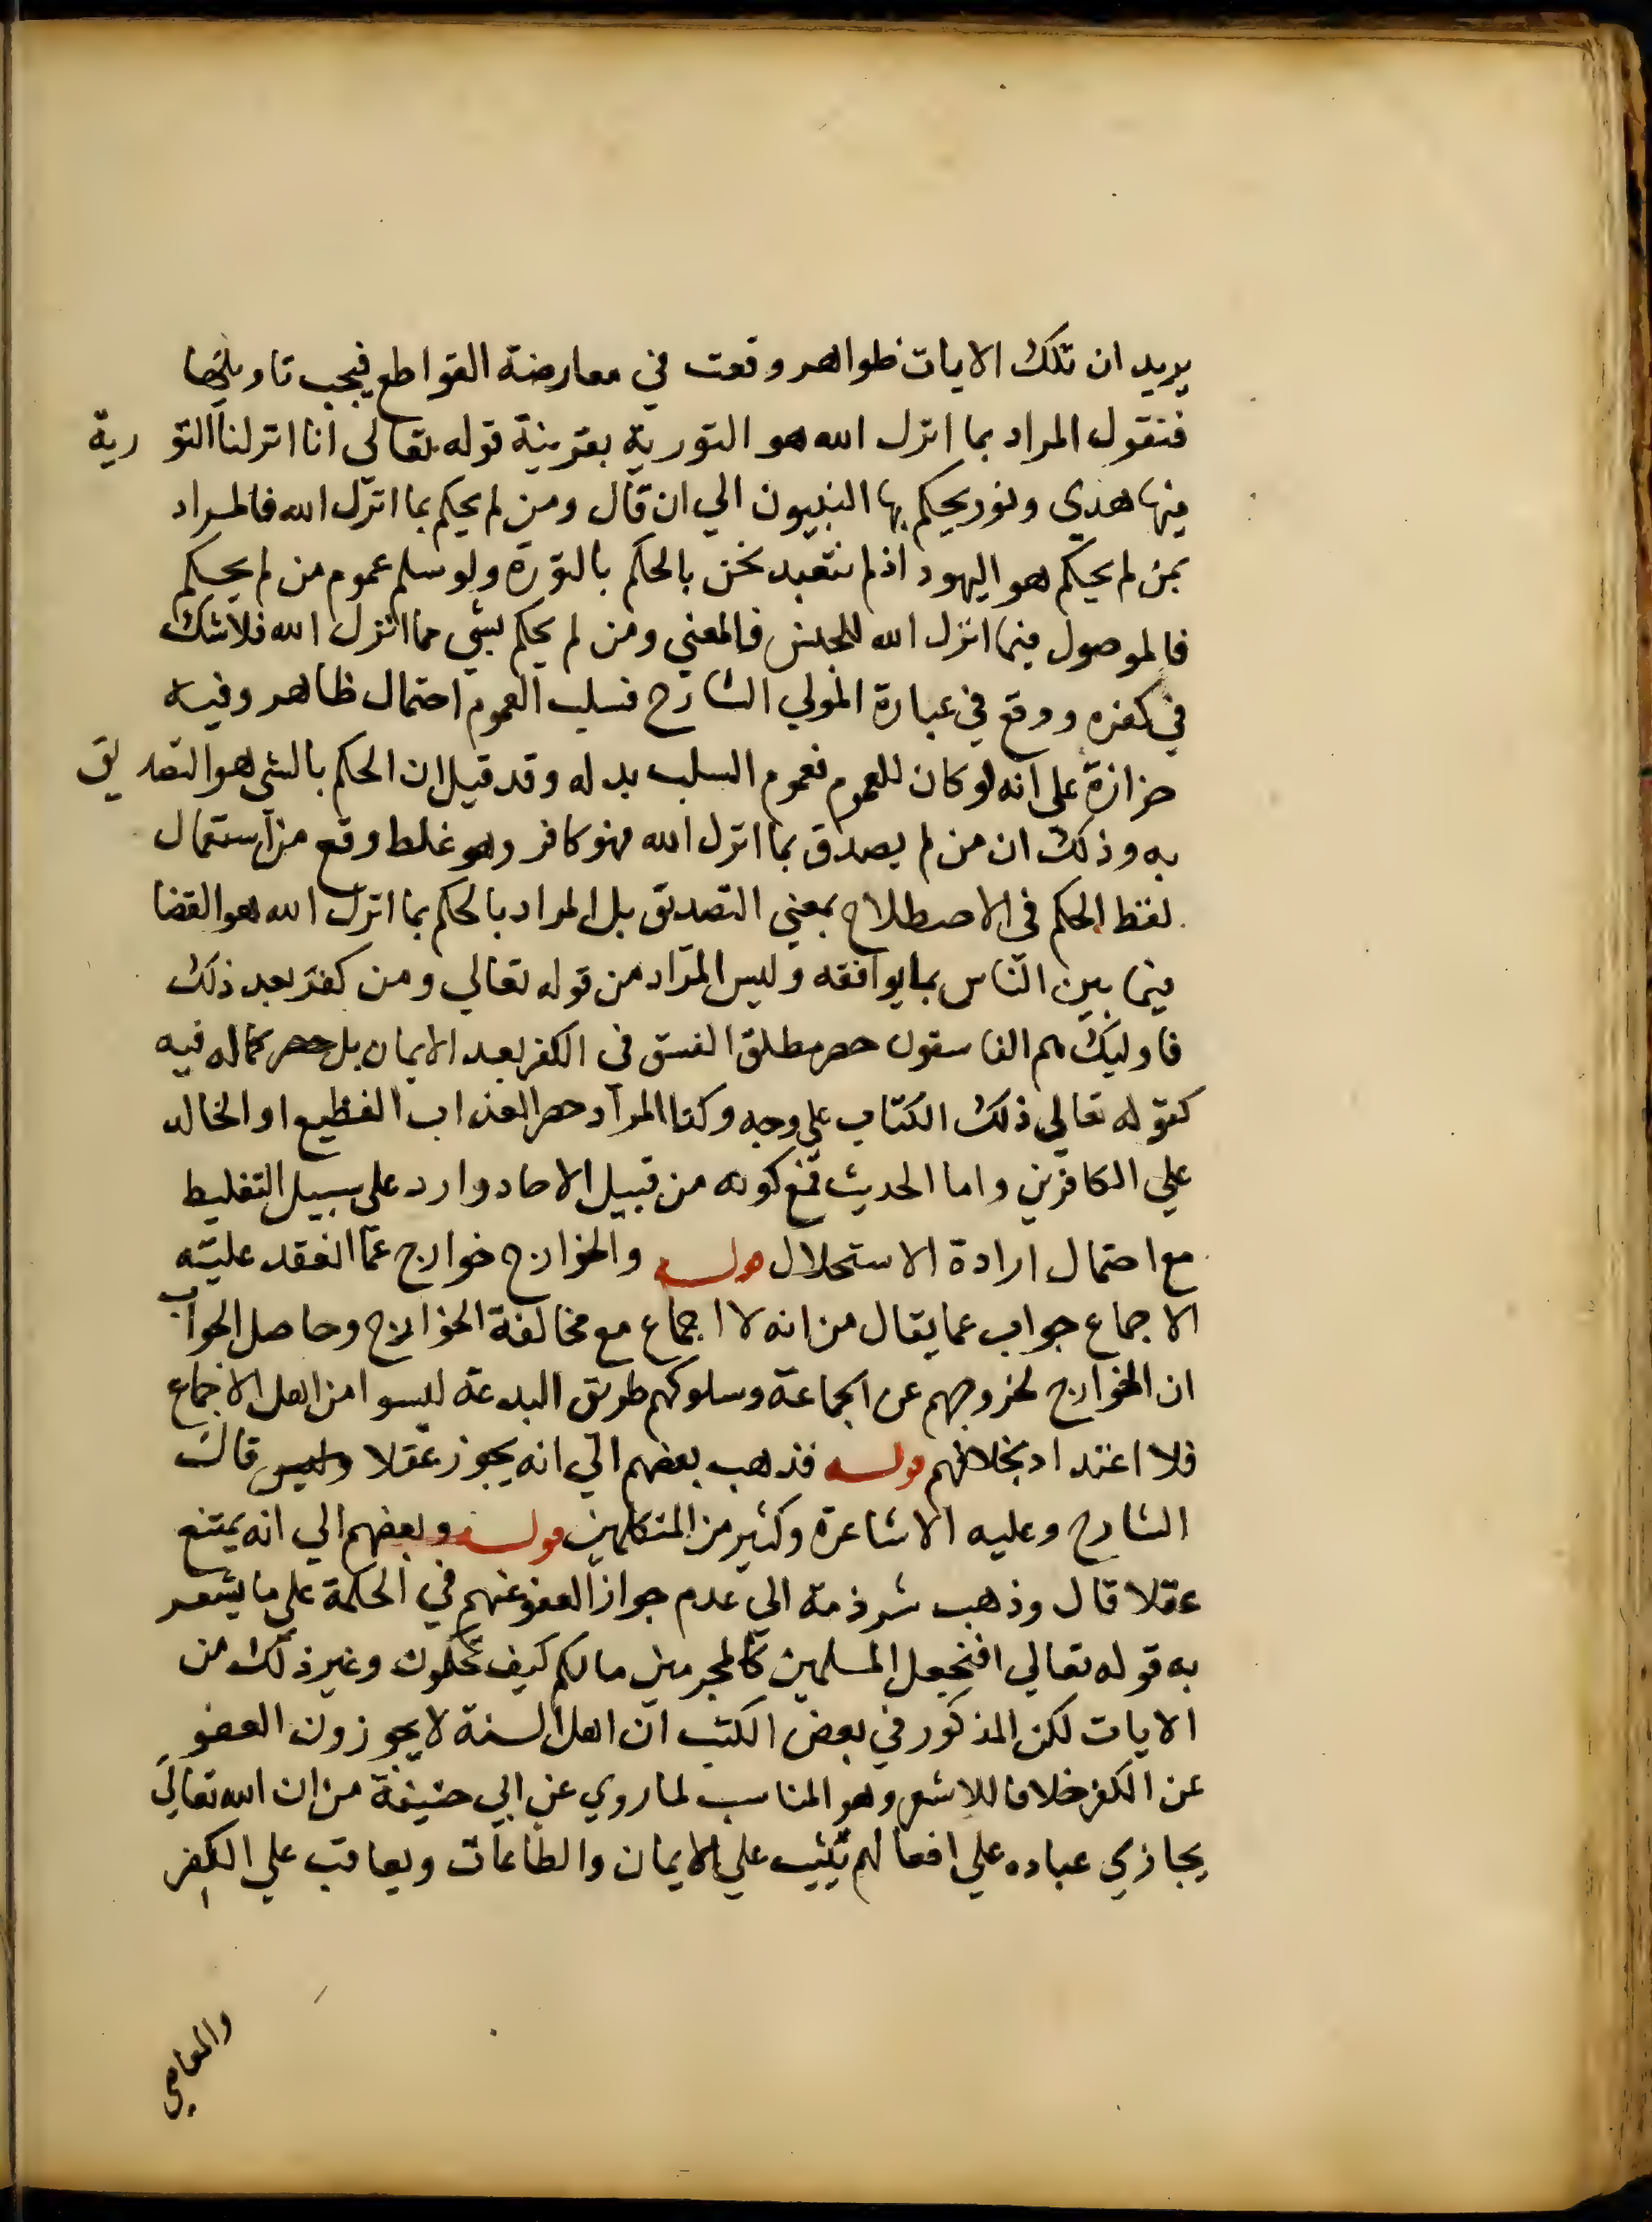 يريد ان تلك الايات ظواهر وقعت في معارضة القواطع فيجب تاويلها
فنقول المراد بما انزل الله هو التورية بقرينة قوله تعالي انا انزلنا التورية
فيها هدي ونور يحكم بها النبيون الي ان قال ومن لم يحكم بما انزل الله فالمراد
بمن لم يحكم هو اليهود اذ لم نتعبد نحن بالحكم بالتورة ولو سلم عموم من لم يحكم
فالموصول فيما انزل الله للجنس فالمعني ومن لم يحكم بشي مما انزل الله فلا شك
في كفره ووقع في عبارة المولي الشارح فسلب العموم احتمال ظاهر وفيه
حزازة علي انه لو كان للعموم فعموم السلب بدله وقد قيل ان الحكم بالشي هو التصديق
به وذلك ان من لم يصدق بما انزل الله فهو كافر وهو غلط وقع من استعمال
لفظ الحكم في الاصطلاح بمعني التصديق بل المراد بالحكم بما انزل الله هو القضا
فيما بين الناس بما يوافقه وليس المراد من قوله تعالي ومن كفر بعد ذلك
فاوليك هم الفاسقون حصر مطلق الفسق في الكفر بعد الايمان بل حصر كماله فيه
كقوله تعالي ذلك الكتاب علي وجه وكذا المراد حصر العذاب الفظيع او الخالد
علي الكافرين واما الحديث فمع كونه من قبيل الاحاد وارد علي سبيل التغليظ
مع احتمال ارادة الاستحلال قوله والخوارج خوارج عما انعقد عليه
الاجماع جواب عما يقال من انه لا اجماع مع مخالفة الخوارج وحاصل الجواب
ان الخوارج لخروجهم عن الجماعة وسلوكهم طريق البدعة ليسوا من اهل الاجماع
فلا اعتداد بخلافهم قوله فذهب بعضهم الي انه يجوز عقلا وليس قال
الشارح وعليه الاشاعرة وكثير من المتكلمين قوله وبعضهم الي انه يمتنع
عقلا قال وذهب شرذمة الي عدم جواز العفو عنهم في الحكمة علي ما يشعر
به قوله تعالي افنجعل المسلمين كالمجرمين مالكم كيف تحكمون وغير ذلك من
الايات لكن المذكور في بعض الكتب ان اهل السنة لا يجوزون العفو
عن الكفر خلافا للاشعر وهو المناسب لما روي عن ابي حنيفة من ان الله تعالي
يجازي عباده علي افعالهم يثيب علي الايمان والطاعات ويعاقب علي الكفر
والمعاصي